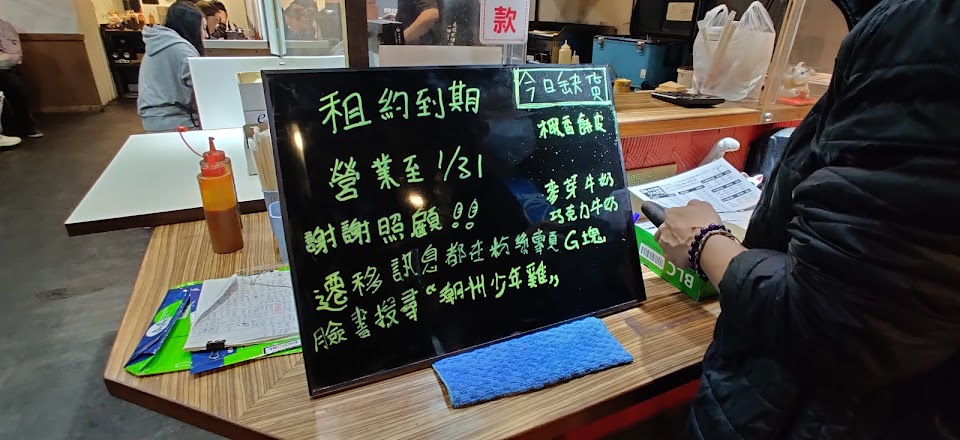 款
租約到期
營業至 1/31
謝謝照顧!!
遷移訊息都在粉絲專頁 G塊
臉書搜尋“潮州少年雞”
今日缺貨
楓香餅皮
麥芽牛奶
巧克力牛奶